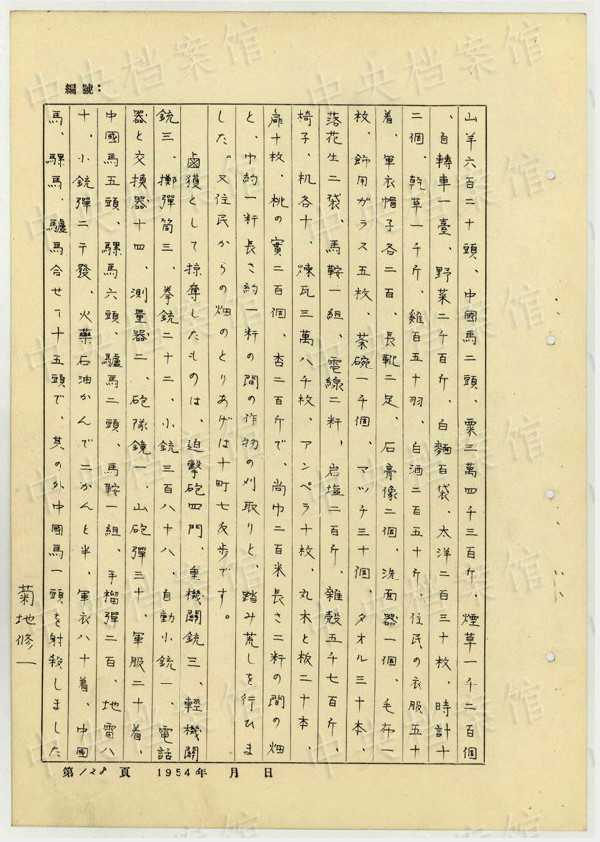 編號：
山羊六百二十頭、中國馬二頭、粟三萬四千三百斤、煙草一千二百個
、自轉車一臺、野菜二千百斤、白麵百袋、太洋二百三十枚、時計十
二個、乾草一千斤、雞百五十羽、白酒二百五十斤、住民の衣服五十
着、軍衣帽子各二百、長靴二足、石膏像二個、洗面器一個、毛布一
枚、飾用ガラス五枚、茶碗一千個、マツチ三十個、タオル三十本、
落花生二袋、馬鞍一組、電線二粁、岩塩二百斤、雜穀五千七百斤、
椅子、机各十、煉瓦三萬八千枚、アンペラ十枚、丸木と板二十本、
扉十枚、桃の實二百個、杏二百斤で、尚巾二百米長さ二粁の間の畑
と、巾約一粁長さ約一粁の間の作物の刈取りと、踏み荒しを行ひま
した。又住民からの畑のとりあげは十町七反步です。
鹵獲として掠奪したものは、迫擊砲四門、重機關銃三、輕機關
銃三、擲彈筒三、拳銃二十二、小銃三百八十八、自動小銃一、電話
器と交換器十四、測量器二、砲隊鏡一、山砲彈三十、軍服二十着、
中國馬五頭、騾馬六頭、驢馬二頭、馬鞍一組、手榴彈二百、地雷八
十、小銃彈二千發、火藥石油かんで二かんと半、軍衣八十着、中國
馬、騾馬、驢馬合せて十五頭で、其の外中國馬一頭を射殺しました
菊地修一
第128頁 1954年 月 日
中央档案馆